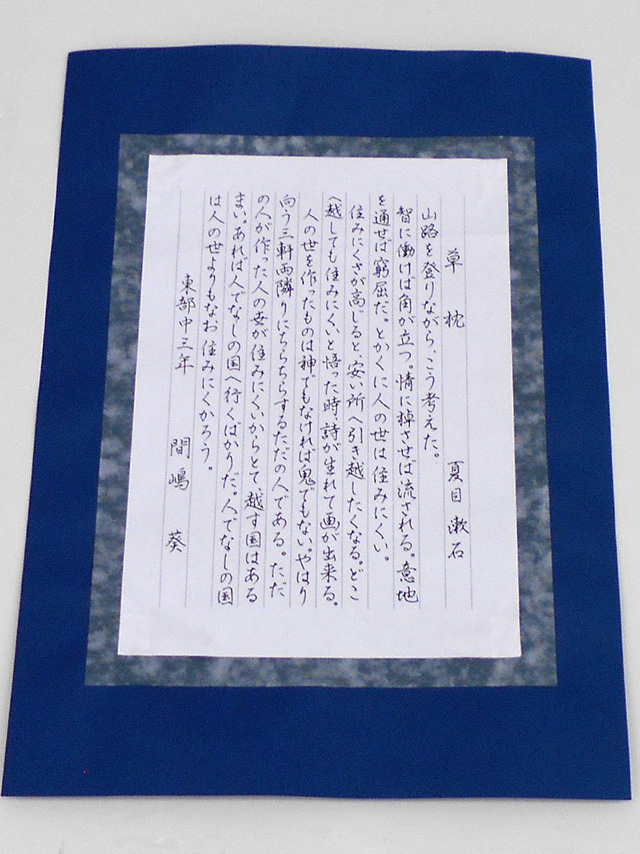 草枕 夏目漱石
山路を登りながら、こう考えた。
智に働けば角が立つ。情に棹させば流される。意地
を通せば窮屈だ。とかくに人の世は住みにくい。
住みにくさが高じると、安い所へ引き越したくなる。どこ
へ越しても住みにくいと悟った時、詩が生れて画が出来る。
人の世を作ったものは神でもなければ鬼でもない。やはり
向う三軒両隣りにちらちらするただの人である。ただ
の人が作った人の世が住みにくいからとて、越す国はある
まい。あれば人でなしの国へ行くばかりだ。人でなしの国
は人の世よりもなお住みにくかろう。
東部中三年 間嶋葵